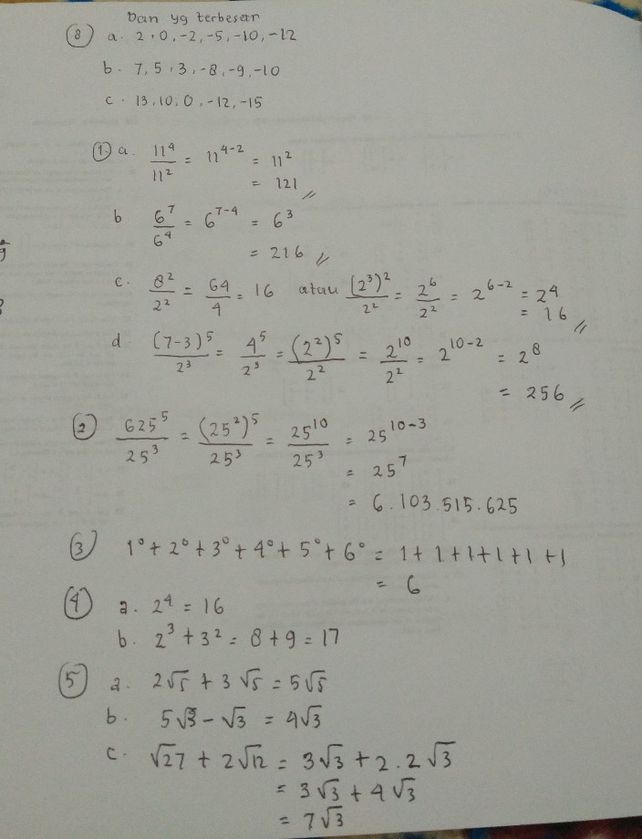 Dan yg terbesar
⑧ a. 2, 0, -2, -5, -10, -12
b. 7, 5, 3, -8, -9, -10
c. 13, 10, 0, -12, -15
① a. 11⁴/11² = 11⁴⁻² = 11²
= 121 //
b 6⁷/6⁴ = 6⁷⁻⁴ = 6³
= 216 //
c. 8²/2² = 64/4 = 16 atau (2³)²/2² = 2⁶/2² = 2⁶⁻² = 2⁴
= 16 //
d (7-3)⁵/2³ = 4⁵/2³ = (2²)⁵/2² = 2¹⁰/2² = 2¹⁰⁻² = 2⁸
= 256 //
② 625⁵/25³ = (25²)⁵/25³ = 25¹⁰/25³ = 25¹⁰⁻³
= 25⁷
= 6.103.515.625
③ 1⁰ + 2⁰ + 3⁰ + 4⁰ + 5⁰ + 6⁰ = 1 + 1 + 1 + 1 + 1 + 1
= 6
④ a. 2⁴ = 16
b. 2³ + 3² = 8 + 9 = 17
⑤ a. 2√5 + 3√5 = 5√5
b. 5√3 - √3 = 4√3
c. √27 + 2√12 = 3√3 + 2.2√3
= 3√3 + 4√3
= 7√3